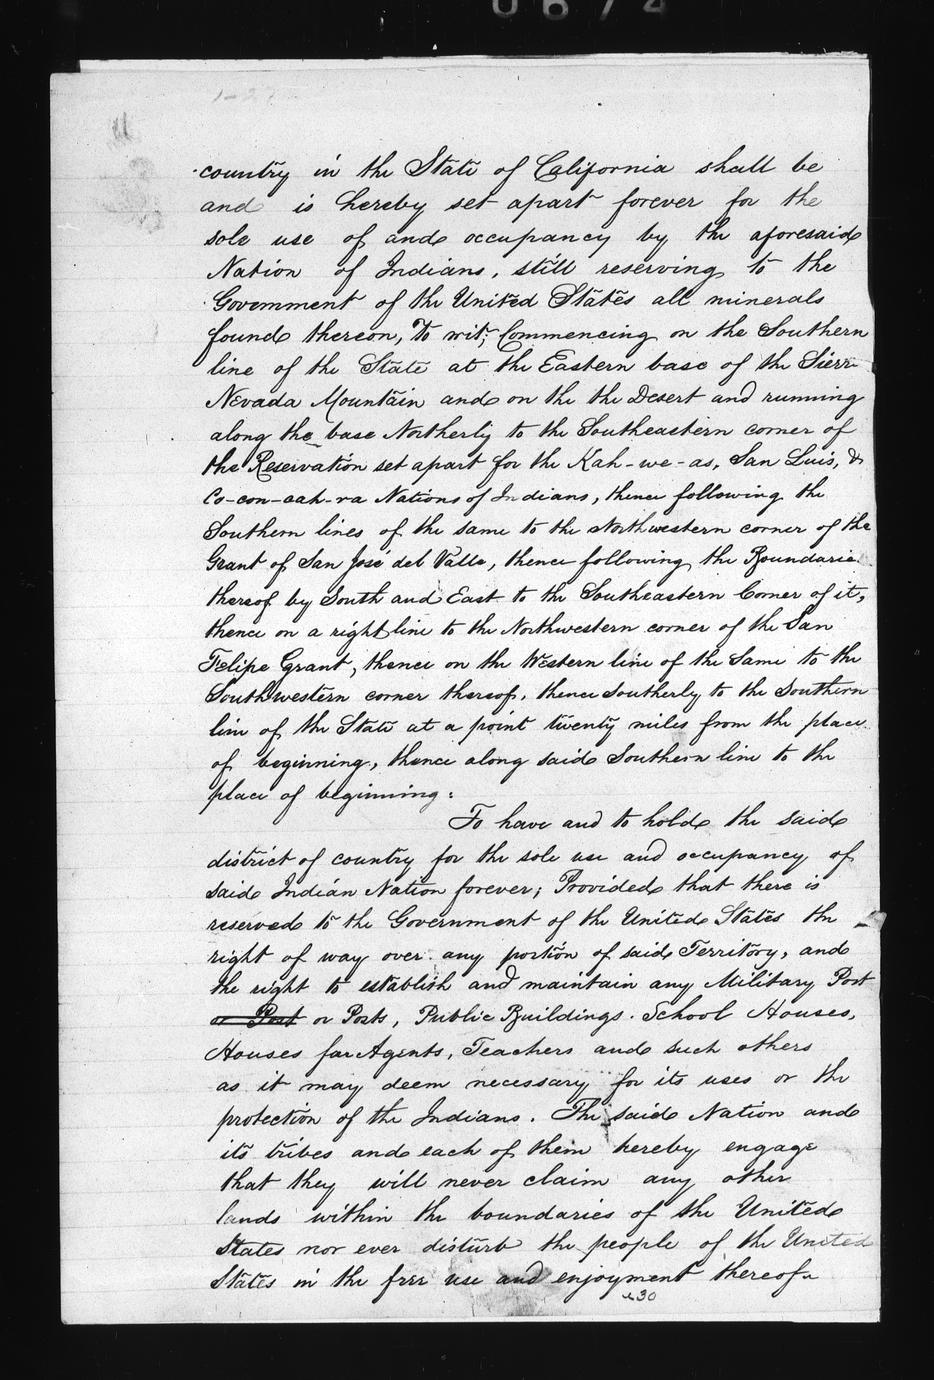 0674
country in the State of California shall be
and is hereby set apart forever for the
sole use of and occupancy by the aforesaid
Nation of Indians, still reserving to the
Government of the United States all minerals
found thereon, To wit; Commencing on the Southern
line of the State at the Eastern base of the Sierra
Nevada Mountain and on the the Desert and running
along the base Northerly to the Southeastern corner of
the Reservation set apart for the Kah-we-as, San Luis, &
Co-con-cah-ra Nations of Indians, thence following the
Southern lines of the same to the Northwestern corner of the
Grant of San José del Valle, thence following the Boundarie
thereof by South and East to the Southeastern Corner of it,
thence on a right line to the Northwestern corner of the San
Felipe Grant, thence on the Western line of the Same to the
Southwestern corner thereof, thence Southerly to the Southern
line of the State at a point twenty miles from the place
of beginning, thence along said Southern line to the
place of beginning:
To have and to hold the said
district of country for the sole use and occupancy of
said Indian Nation forever; Provided that there is
reserved to the Government of the United States the
right of way over any portion of said Territory, and
the right to establish and maintain any Military Post
or Post or Posts, Public Buildings. School Houses,
Houses for Agents, Teachers and such others
as it may deem necessary for its uses or the
protection of the Indians. The said Nation and
its tribes and each of them hereby engage
that they will never claim any other
lands within the boundaries of the United
States nor ever disturb the people of the United
States in the free use and enjoyment thereof
30